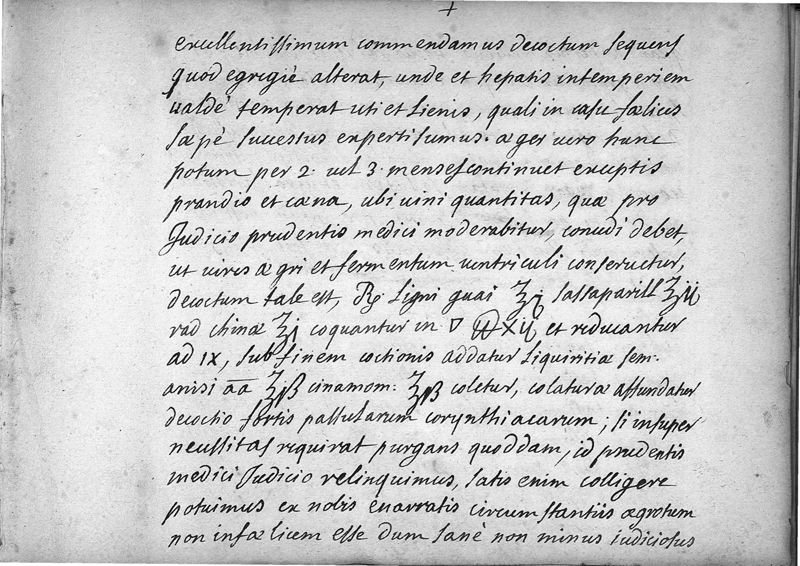 +
excellentissimum commendamus decoctum sequens
quod egregiè alterat, unde et hepatis intemperiem
ualdè temperat uti et Lienis, quali in casu fælicus
sæpè successus experti sumus. æger uero hunc
potum per 2. uel 3. menses continuet exceptis
prandio et cæna, ubi uini quantitas, quæ pro
Judicio prudentis medici moderabitur, concedi debet,
ut uires ægri et fermentum uentriculi conseruetur,
decoctum tale est, ℞ Ligni guai ʒj sassaparill ʒij
rad chinæ ʒj coquantur in ▽ ℔ xij et reducantur
ad ix, sub finem coctionis addatur Liquiritiæ sem:
anisi āā ʒjβ cinamom: ʒβ coletur, colaturæ affundatur
decoctio fortis passularum corynthiacarum; si insuper
necessitas requirat purgans quoddam, id prudentis
medici Judicio relinquimus, satis enim colligere
potuimus ex nobis enarratis circumstantiis ægrotum
non infælicem esse dum sanè non minus iudiciosus